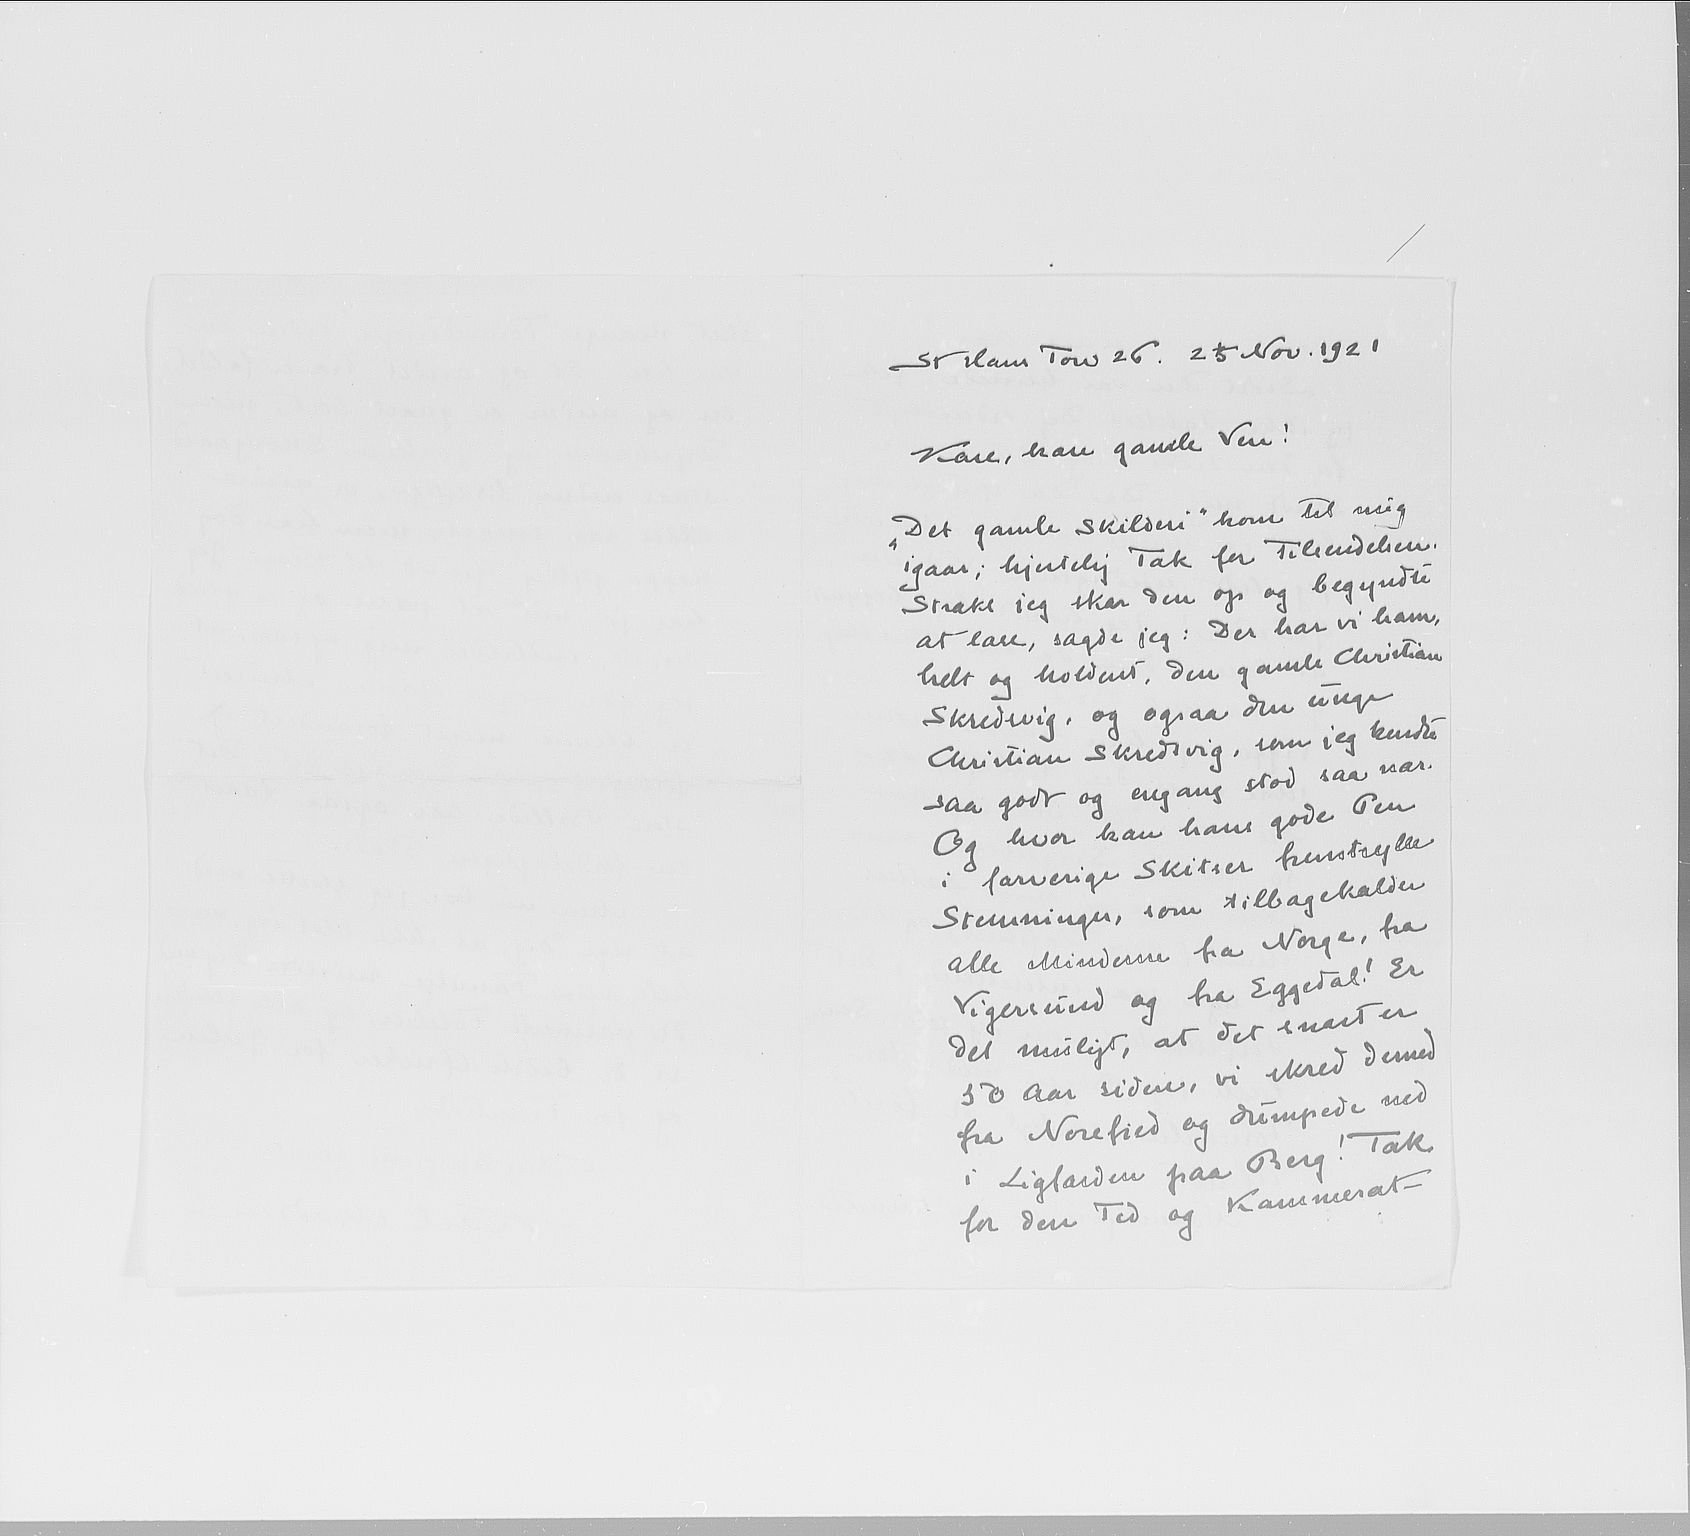 St Hans Torv 26. 25 Nov. 1921
Kære, kære gamle Ven!
„Det gamle Skilderi" kom til mig
igaar; hjertelig Tak for Tilsendelsen.
Straks jeg skar den op og begyndte
at læse, sagde jeg: Der har vi ham,
helt og holdent, den gamle Christian
Skredsvig, og ogsaa den unge
Christian Skredsvig, som jeg kendte
saa godt og engang stod saa nær.
Og hvor kan hans gode Pen
i farverige Skitser fremtrylle
Stemninger, som tilbagekalder
alle Minderne fra Norge, fra
Vigersund og fra Eggedal! Er
det muligt, at det snart er
50 Aar siden, vi skred derned
fra Norefjed og dumpede ned
i Ligfærden paa Berg! Tak
for den Tid og Kammerat-